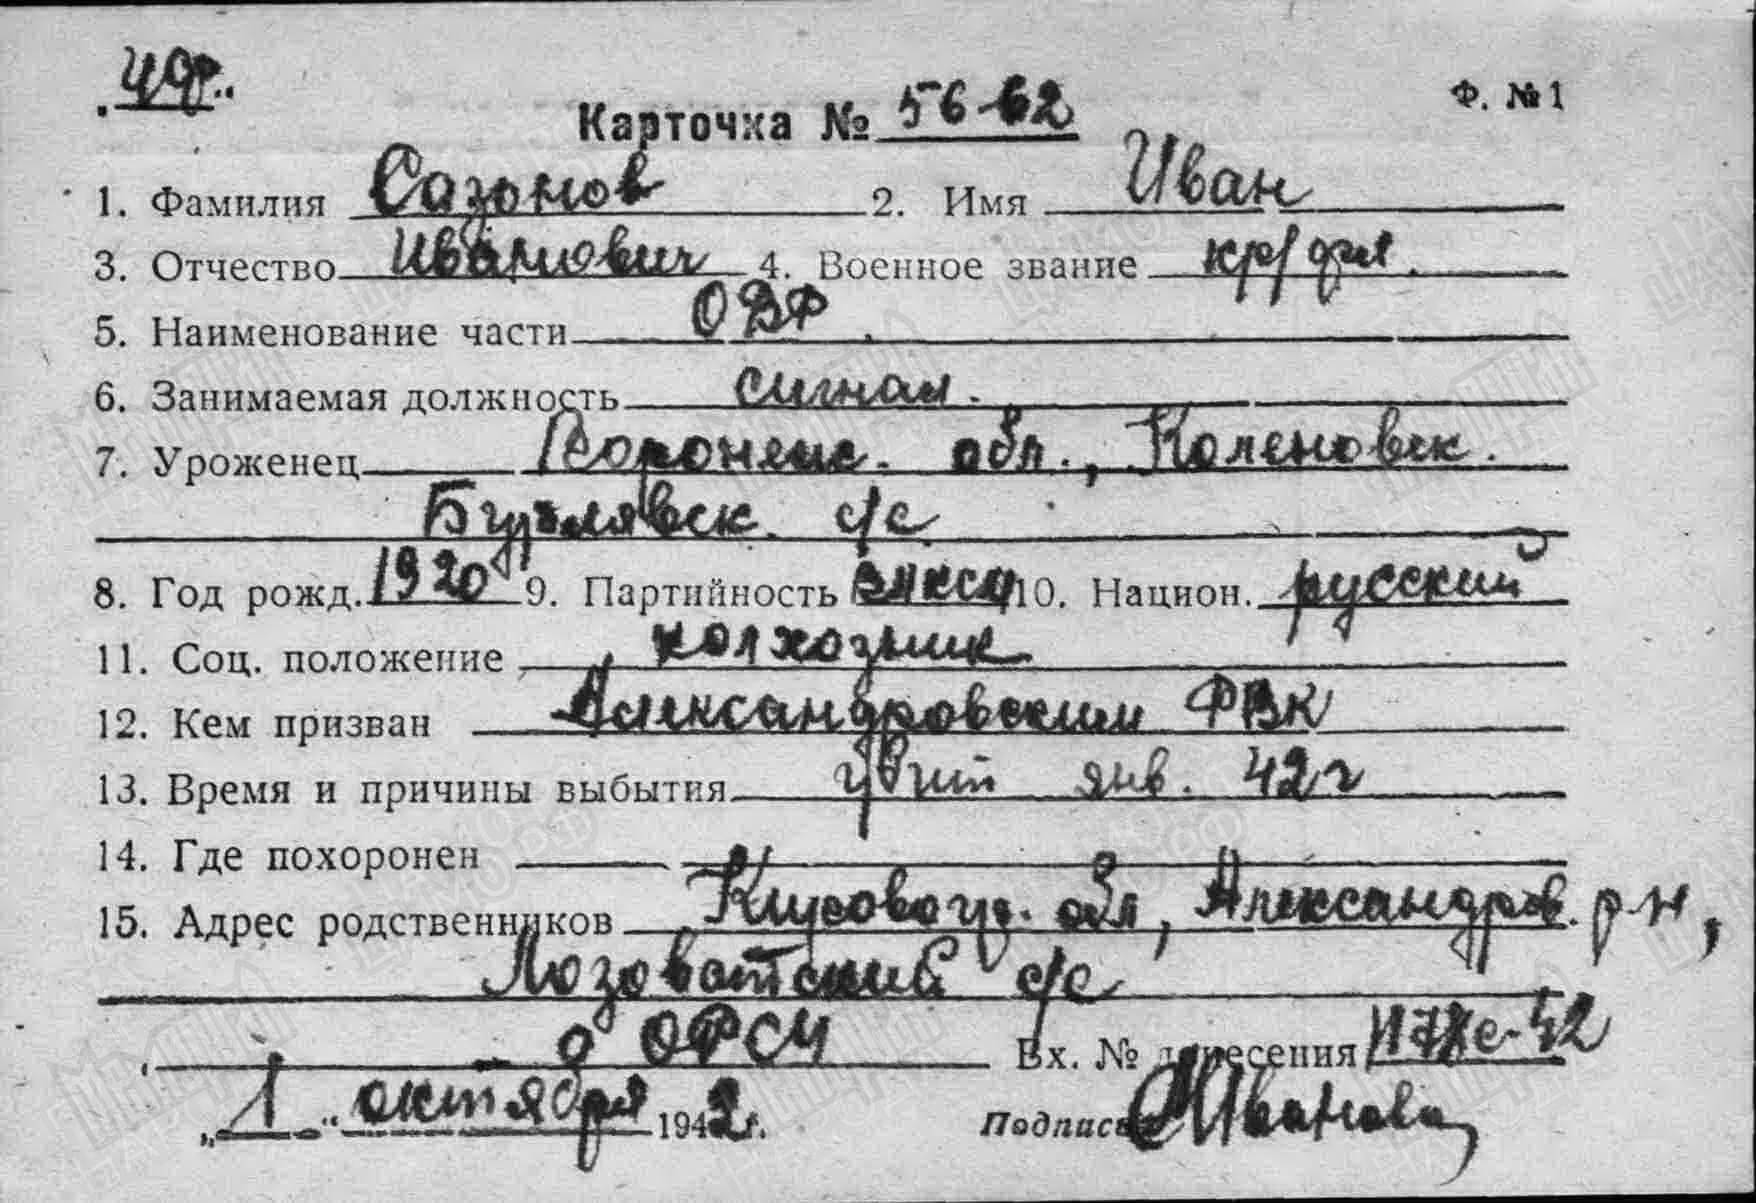 ЧФ.
Карточка № 56-62
Ф. № 1
1. Фамилия Сазонов 2. Имя Иван
3. Отчество Иванович 4. Военное звание кр/фл.
5. Наименование части ОВР
6. Занимаемая должность сигнал.
7. Уроженец Воронеж. обл., Коленовск.
с/с
8. Год рожд. 1920 9. Партийность ВЛКСМ 10. Национ. русский
11. Соц. положение колхозник
12. Кем призван Александровским РВК
13. Время и причины выбытия убит янв. 42 г
14. Где похоронен
15. Адрес родственников обл, Александров. р-н,
Лозоватский с/с
Вх. № донесения
„ 1 " октября 1942 г. Подпись Иванова